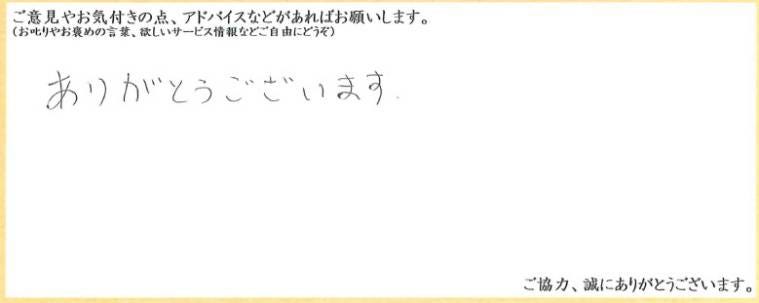 ご意見やお気付きの点、アドバイスなどがあればお願いします。
(お叱りやお褒めの言葉、欲しいサービス情報などご自由にどうぞ)
ありがとうございます.
ご協力、誠にありがとうございます。